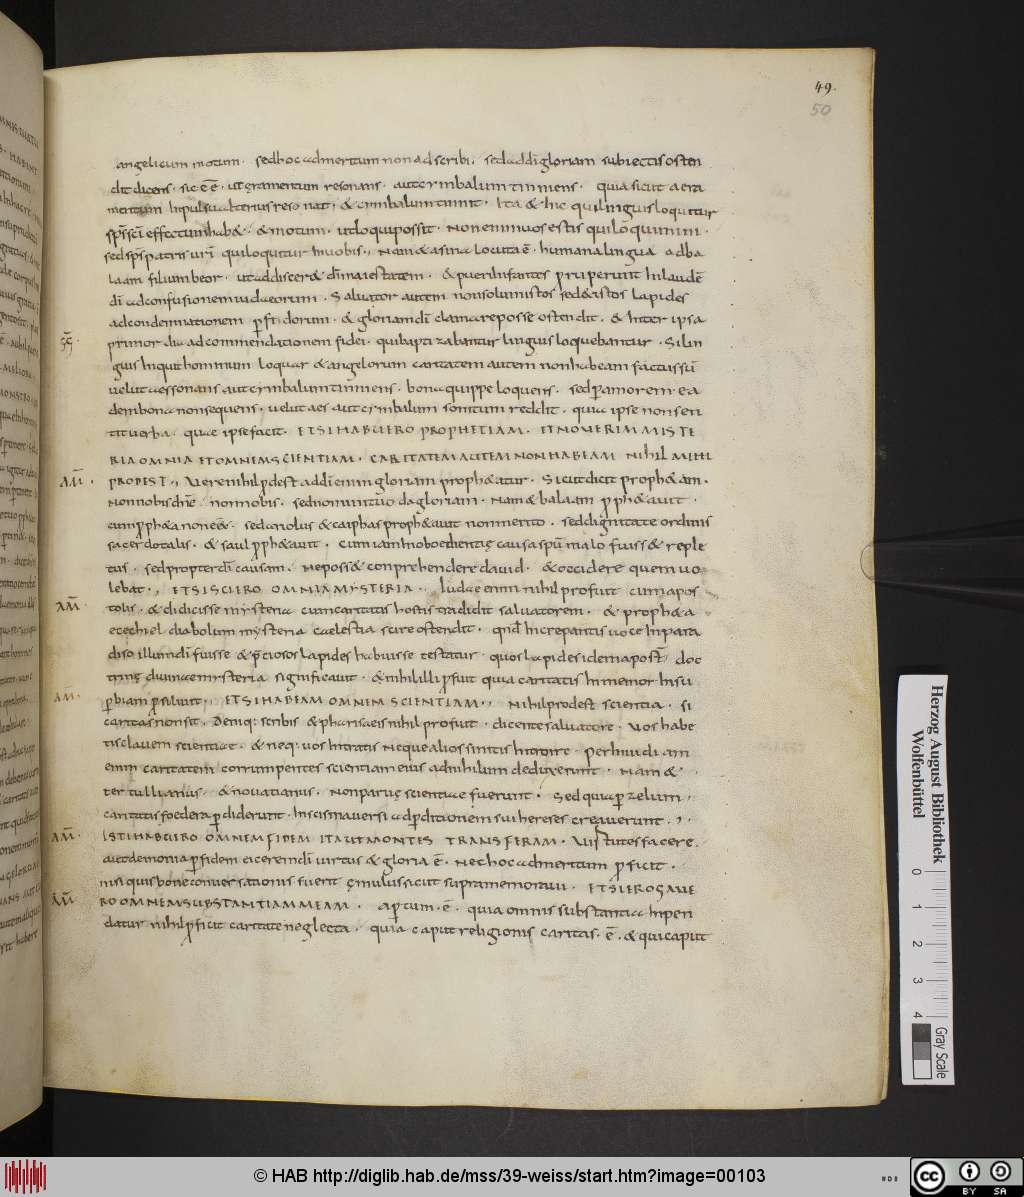 49.
50
angelicum motum. sed hoc ad meritum non adscribi, sed ad dī gloriam subiectis osten
dit dicens. sic ē ē. ut ęramentum resonans. aut cymbalum tinniens. quia sicut aera
mentum inpulsu alterius resonat. & cymbalum tinnit. Ita & hic qui linguis loquitur
sp̄s sc̄i effectum hab&. & motum. ut loqui possit. Non enim uos estis qui loquimini.
sed sp̄s patris ur̄i qui loquitur in uobis, Nam & asina locuta ē. humana lingua ad ba
laam filium beor. ut addiscer& dī maiestatem. & pueri infantes proruperunt in laudē
dī ad confusionem iudaeorum. Saluator autem non solum istos sed & istos lapides
ad condemnationem perfidorum. & gloriam dī clamare posse ostendit. & inter ipsa
s̄s̄.
primordia ad commendationem fidei. qui baptizabantur linguis loquebantur. Si lin
guis inquit hominum loquar & angelorum caritatem autem non habeam factus sū
uelut aes sonans aut cymbalum tinniens. bona quippe loquens. sed per amorem ea
dem bona non sequens. uelut aes aut cymbalum sonitum reddit. quia ipse non sen
tit uerba. quae ipse facit. ET SI HABUERO PROPHETIAM. ET NOUERIM MISTE
RIA OMNIA ET OMNEM SCIENTIAM. CARITATEM AUTEM NON HABEAM NIHIL MIHI
AM̄.
PRODEST,, Vere nihil prodest ad dī enim gloriam proph&atur. Sicut dicit proph&am.
non nobis dn̄e non nobis. sed nomini tuo da gloriam. Nam & balaam proph&auit.
cum proph&a non ess&. sed ariolus & caiphas proph&auit non merito. sed dignitate ordinis
sacerdotalis. & saul proph&auit. cum iam inoboedientię causa spū malo fuiss& reple
tus. sed propter dī causam. Ne poss& conprehendere dauid. & occidere quem uo
lebat., ET SI SCIERO OMNIA MYSTERIA., Iudae enim nihil profuit cum apos
AM̄.
tolis. & didicisse mysteria cum caritatis hostis tradidit saluatorem. & proph&a
ezechiel diabolum mysteria caelestia scire ostendit. qnd increpantis uoce in para
diso illum dī fuisse & p̄ciosos lapides habuisse testatur. quos lapides idem apost̄ doc
trinę diuinae mysteria significauit. & nihil illi profuit quia caritatis inmemor in su
AM̄.
perbiam prosiluit,, ET SI HABEAM OMNEM SCIENTIAM., Nihil prodest scientia. si
caritas non sit. Deniq: scribis & pharisaeis nihil profuit. dicente saluatore. Uos habe
tis clauem scientiae. & neq: uos intratis neque alios sinitis introire. per inuidiam
enim caritatem corrumpentes scientiam eius ad nihilum deduxerunt. Nam &
tertullianus. & nouatianus. Non paruę scientiae fuerunt. Sed quia per zelum,
caritatis foedera perdiderunt. in scisma uersi ad perditionem sui hereses creauerunt.,
AM̄.
ISTI HABUERO OMNEM FIDEM ITA UT MONTES TRANSFERAM. Uirtutes facere.
aut demonia per fidem eicere in dī uirtus & gloria ē. Nec hoc ad meritum proficit.
nisi quis bonae conuersationis fuerit ęmulus sicut supra memoraui. ET SI EROGAUE
AM̄.
RO OMNEM SUBSTANTIAM MEAM. Apertum. ē. quia omnis substantia inpen
datur nihil proficit caritate neglecta. quia caput religionis caritas. ē. & qui caput
Herzog August Bibliothek
Wolfenbüttel
0 1 2 3 4
Gray Scale
© HAB http://diglib.hab.de/mss/39-weiss/start.htm?image=00103
cc BY SA